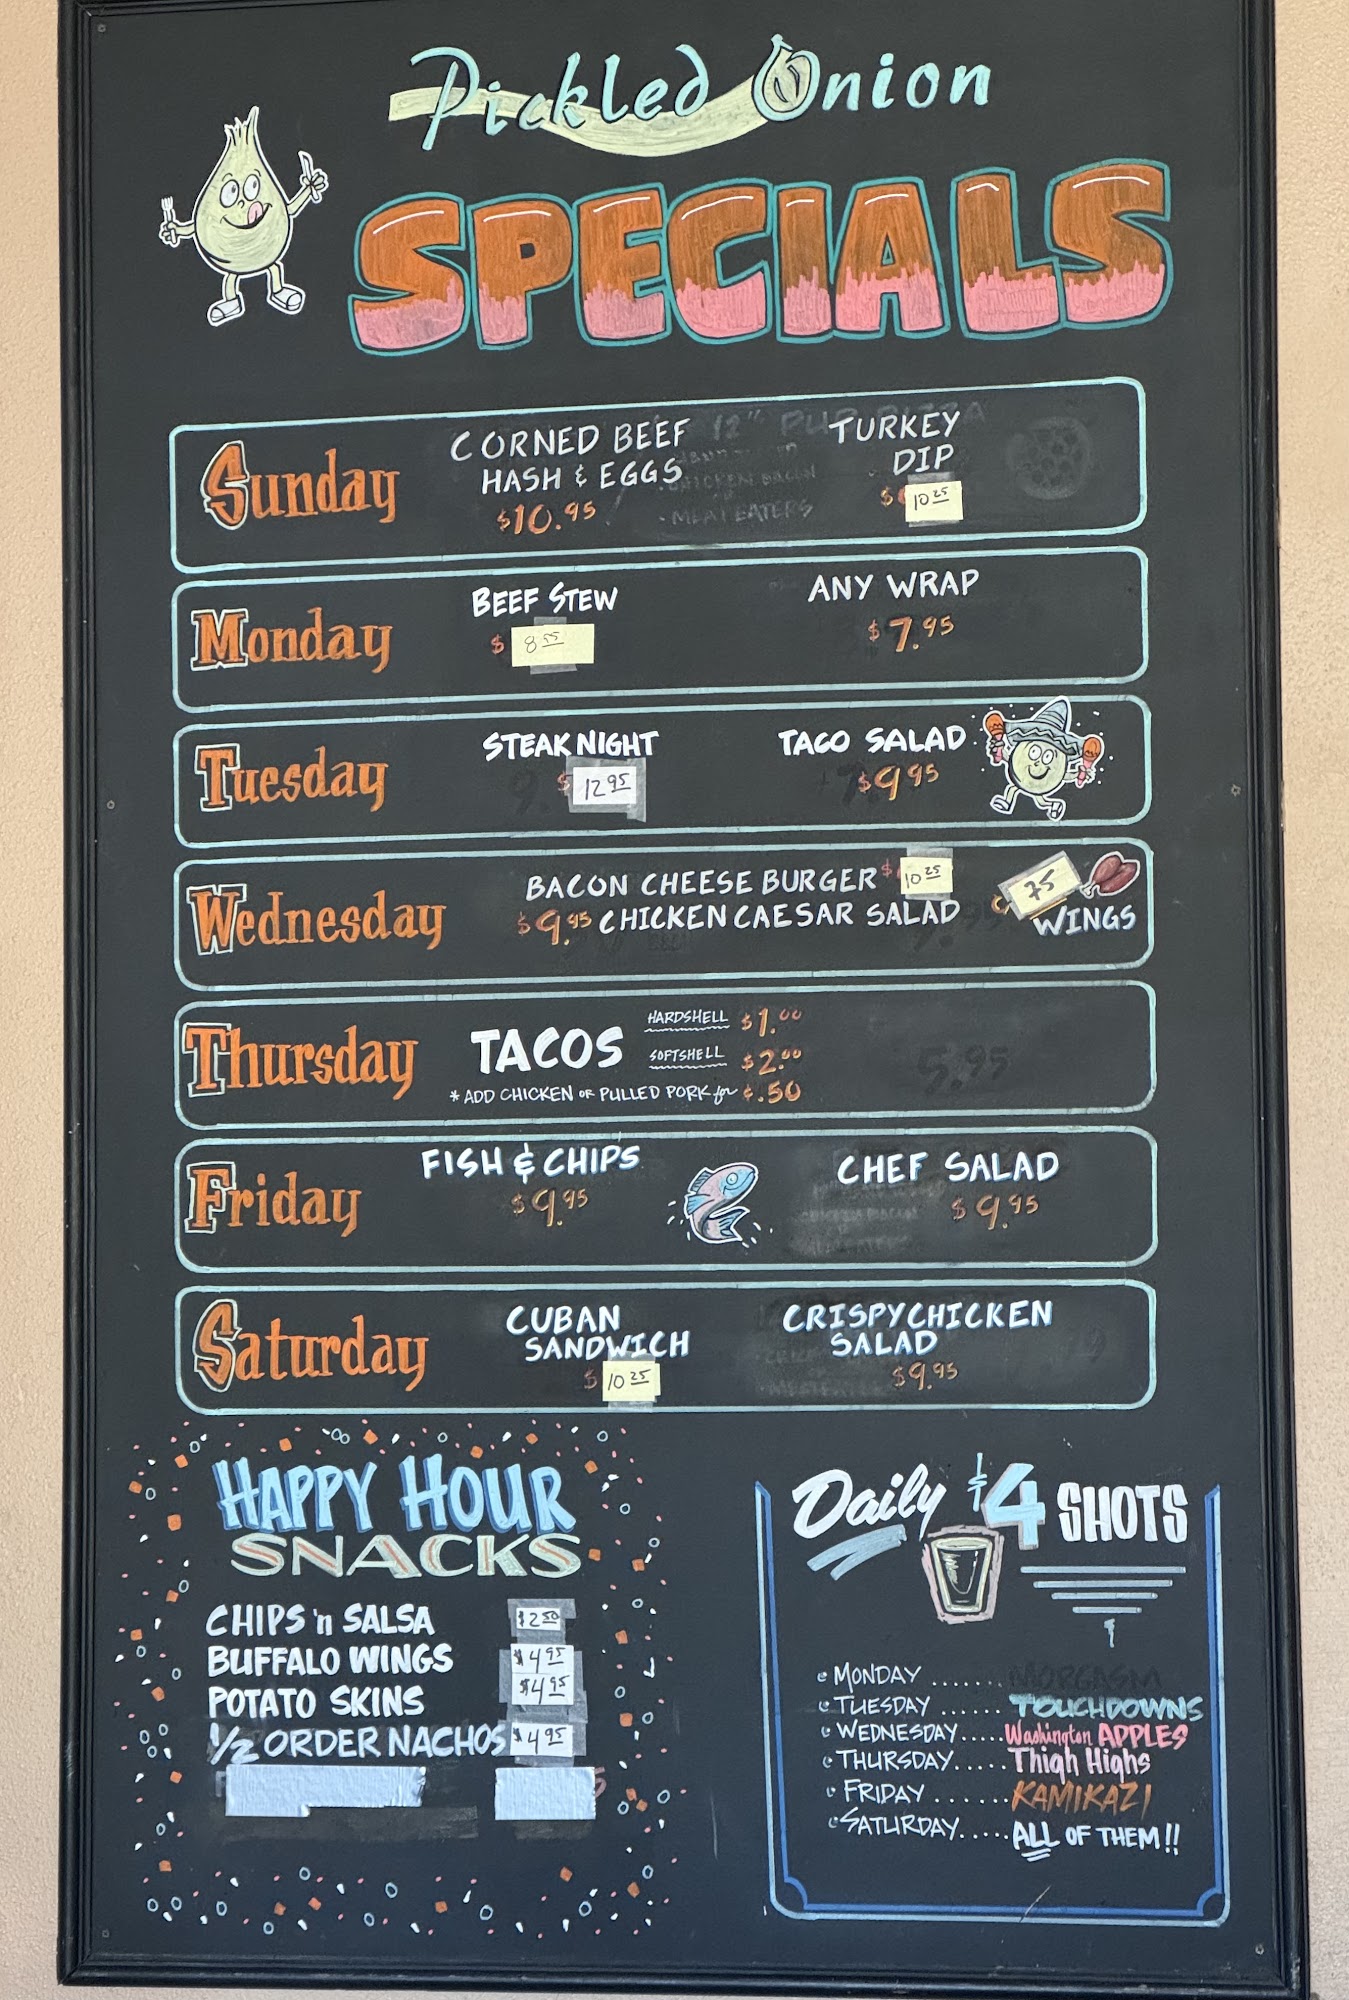 Pickled Onion
SPECIALS
Sunday
CORNED BEEF
HASH & EGGS
$10.95
TURKEY
DIP
$ 10 25
12" PUB PIZZA
CHICKEN BACON
MEAT EATERS
Monday
BEEF STEW
$
ANY WRAP
$7.95
Tuesday
STEAK NIGHT
$ 12 95
TACO SALAD
$9.95
Wednesday
BACON CHEESE BURGER $ 10 25
$9.95 CHICKEN CAESAR SALAD
75
WINGS
Thursday
TACOS
HARDSHELL $1.00
SOFTSHELL $2.00
* ADD CHICKEN or PULLED PORK for $.50
5.95
Friday
FISH & CHIPS
$9.95
CHEF SALAD
$9.95
Saturday
CUBAN
SANDWICH
$ 10 25
CRISPY CHICKEN
SALAD
$9.95
HAPPY HOUR
SNACKS
CHIPS 'n SALSA $2 50
BUFFALO WINGS $4 95
POTATO SKINS $4 95
1/2 ORDER NACHOS $4 95
Daily $4 SHOTS
MONDAY ...... MORGASM
TUESDAY ...... TOUCHDOWNS
WEDNESDAY..... Washington APPLES
THURSDAY..... Thigh Highs
FRIDAY ....... KAMIKAZI
SATURDAY..... ALL OF THEM!!